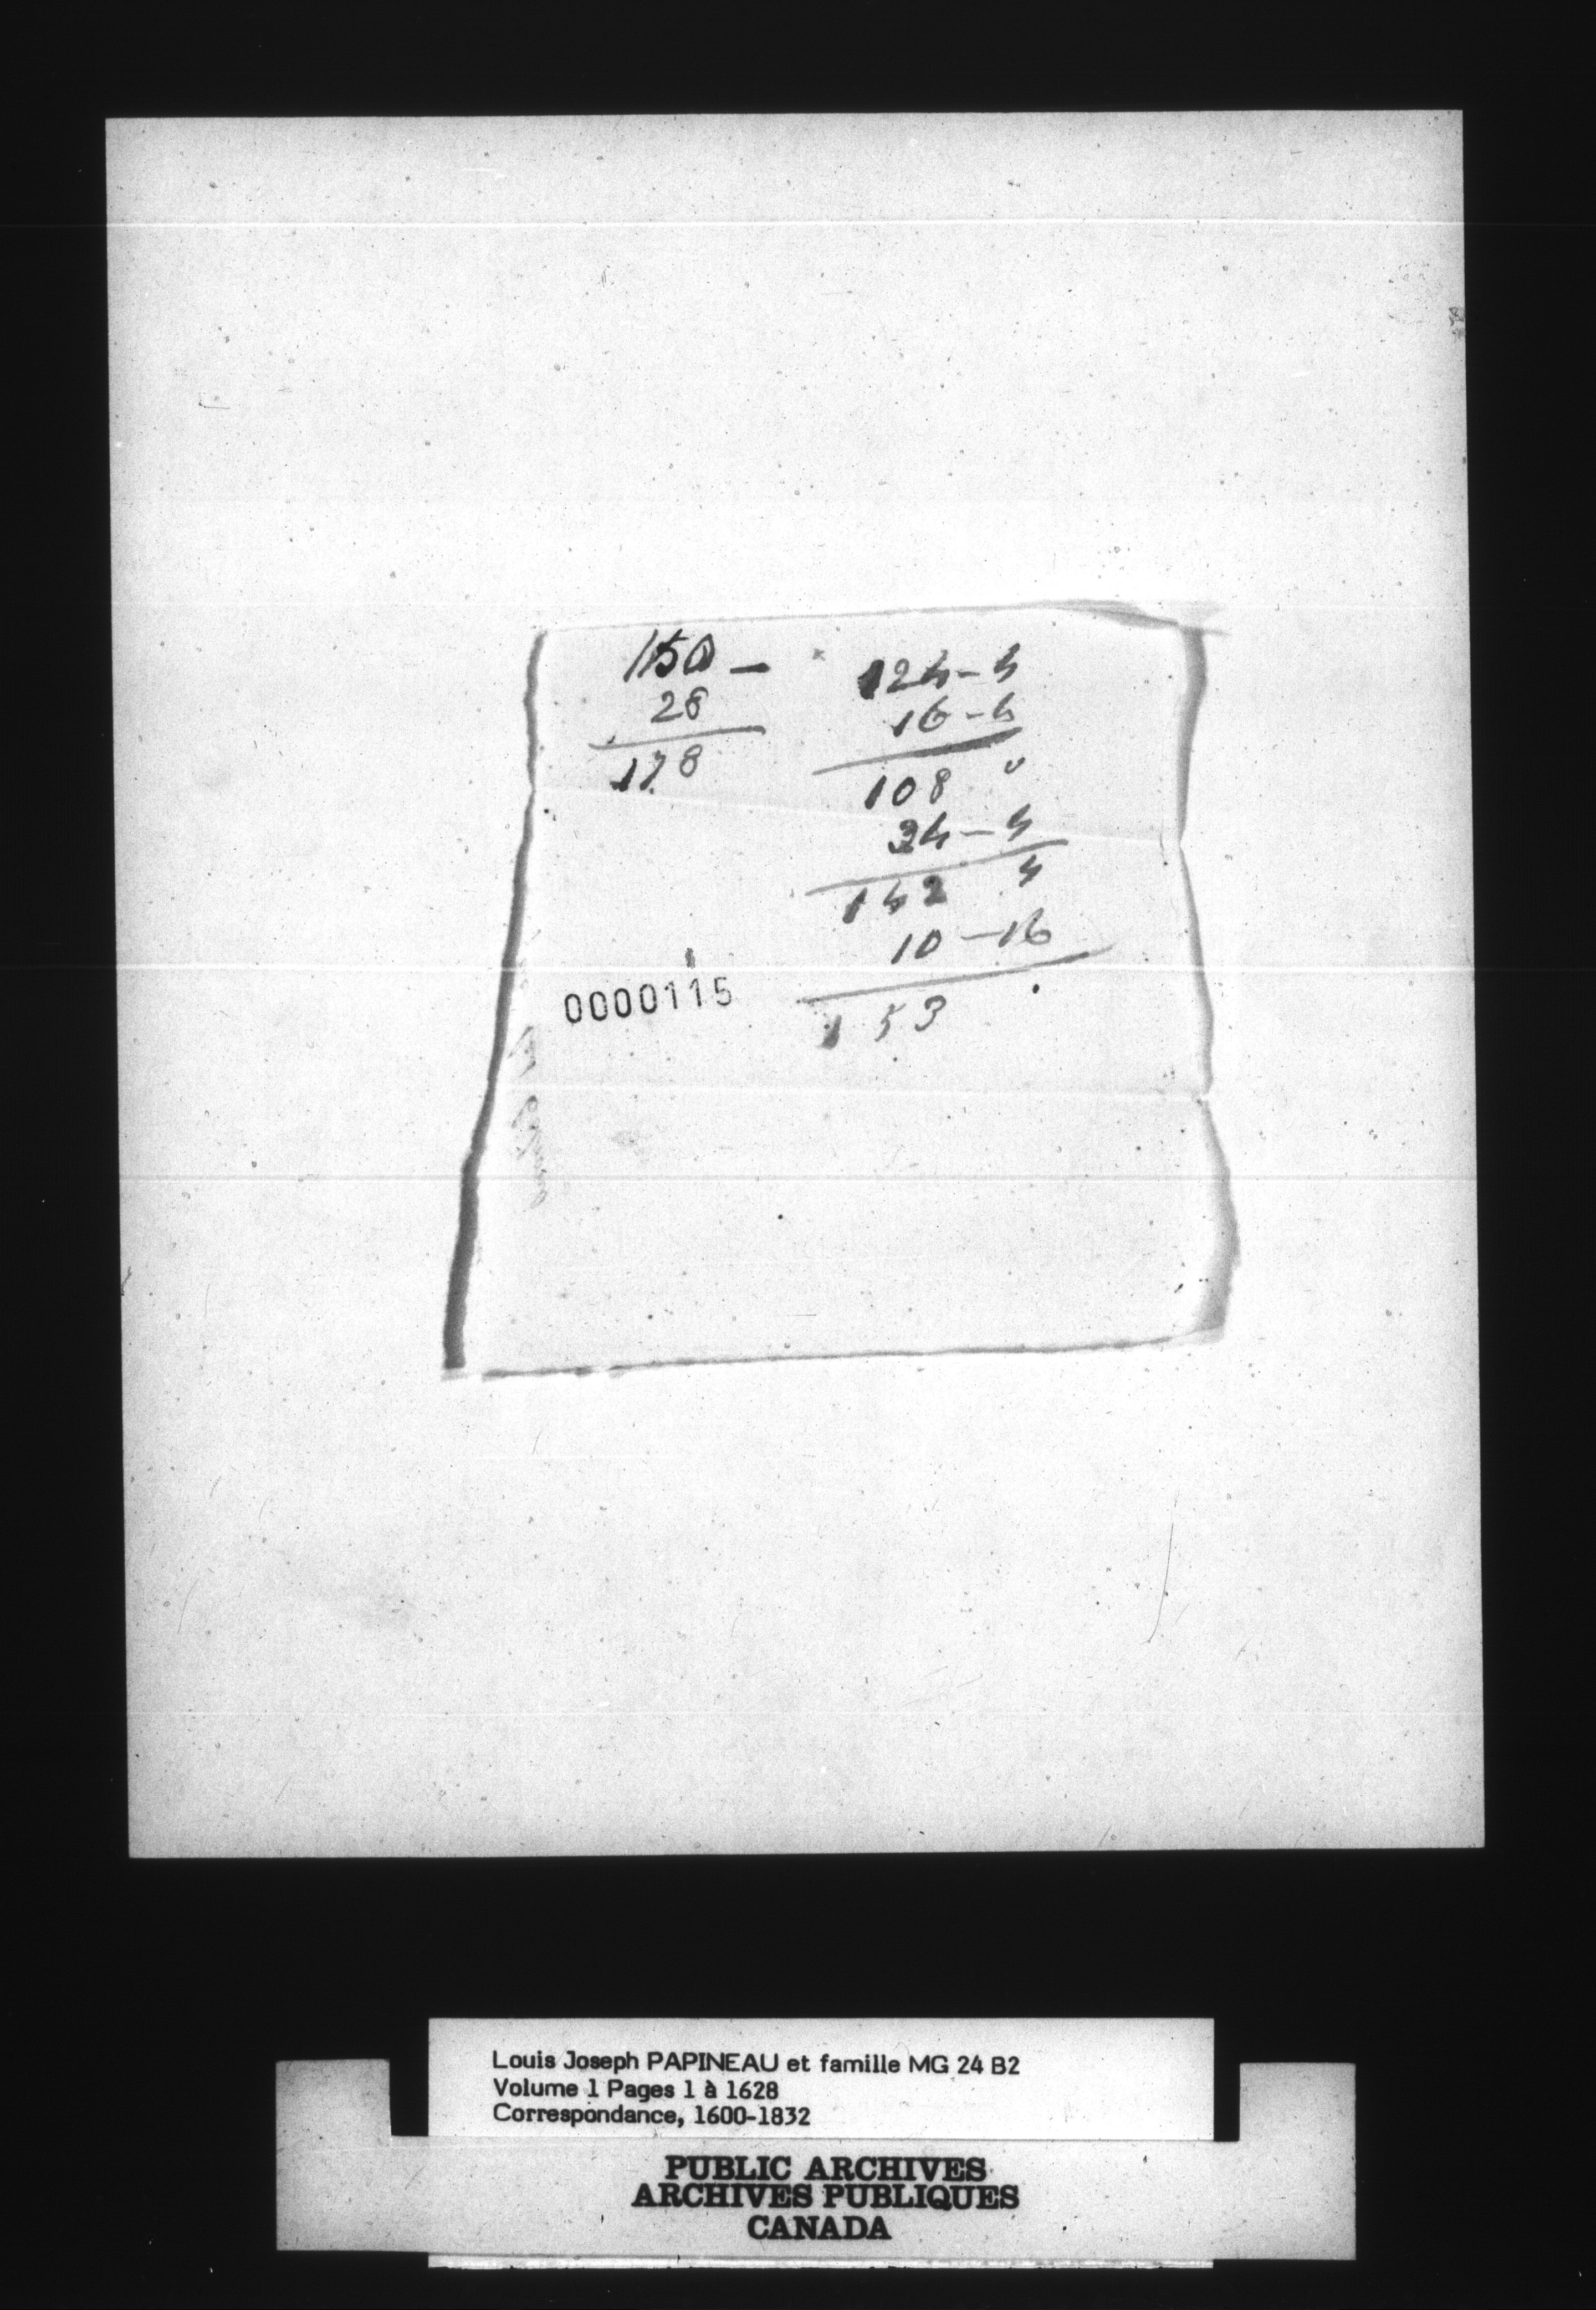 150 –
28
178
124 – 4
16 – 4
108 "
34 – 4
142 4
10 – 16
153 .
0000115
Louis Joseph PAPINEAU et famille MG 24 B2
Volume 1 Pages 1 à 1628
Correspondance, 1600-1832
PUBLIC ARCHIVES
ARCHIVES PUBLIQUES
CANADA